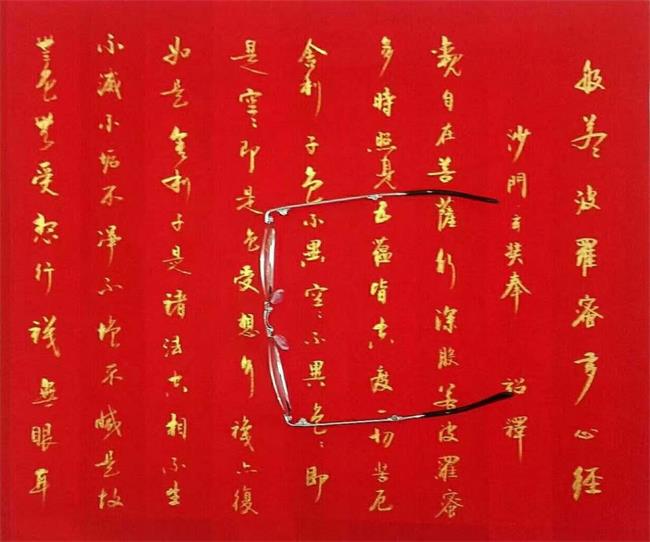 般若波羅蜜多心經
沙門玄奘奉 詔譯
觀自在菩薩行深般若波羅蜜
多時照見五蘊皆空度一切苦厄
舍利子色不異空〻不異色〻即
是空〻即是色受想行識亦復
如是舍利子是諸法空相不生
不滅不垢不淨不增不減是故
無色無受想行識無眼耳